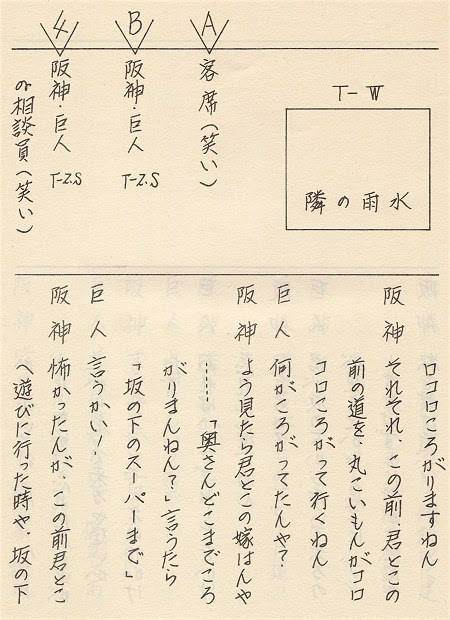 T-W
隣の雨水
A
客席(笑い)
B
阪神・巨人
T-Z.S
4
阪神・巨人
T-Z.S
の相談員(笑い)
ロコロころがりますねん
阪神 それそれ、この前、君とこの
前の道を、丸こいもんがコロ
コロころがって行くねん
巨人 何がころがってたんや?
阪神 よう見たら君とこの嫁はんや
……「奥さんどこまでころ
がりまんねん?」言うたら
「坂の下のスーパーまで」
巨人 言うかい!
阪神 怖かったんが、この前君とこ
へ遊びに行った時や、坂の下